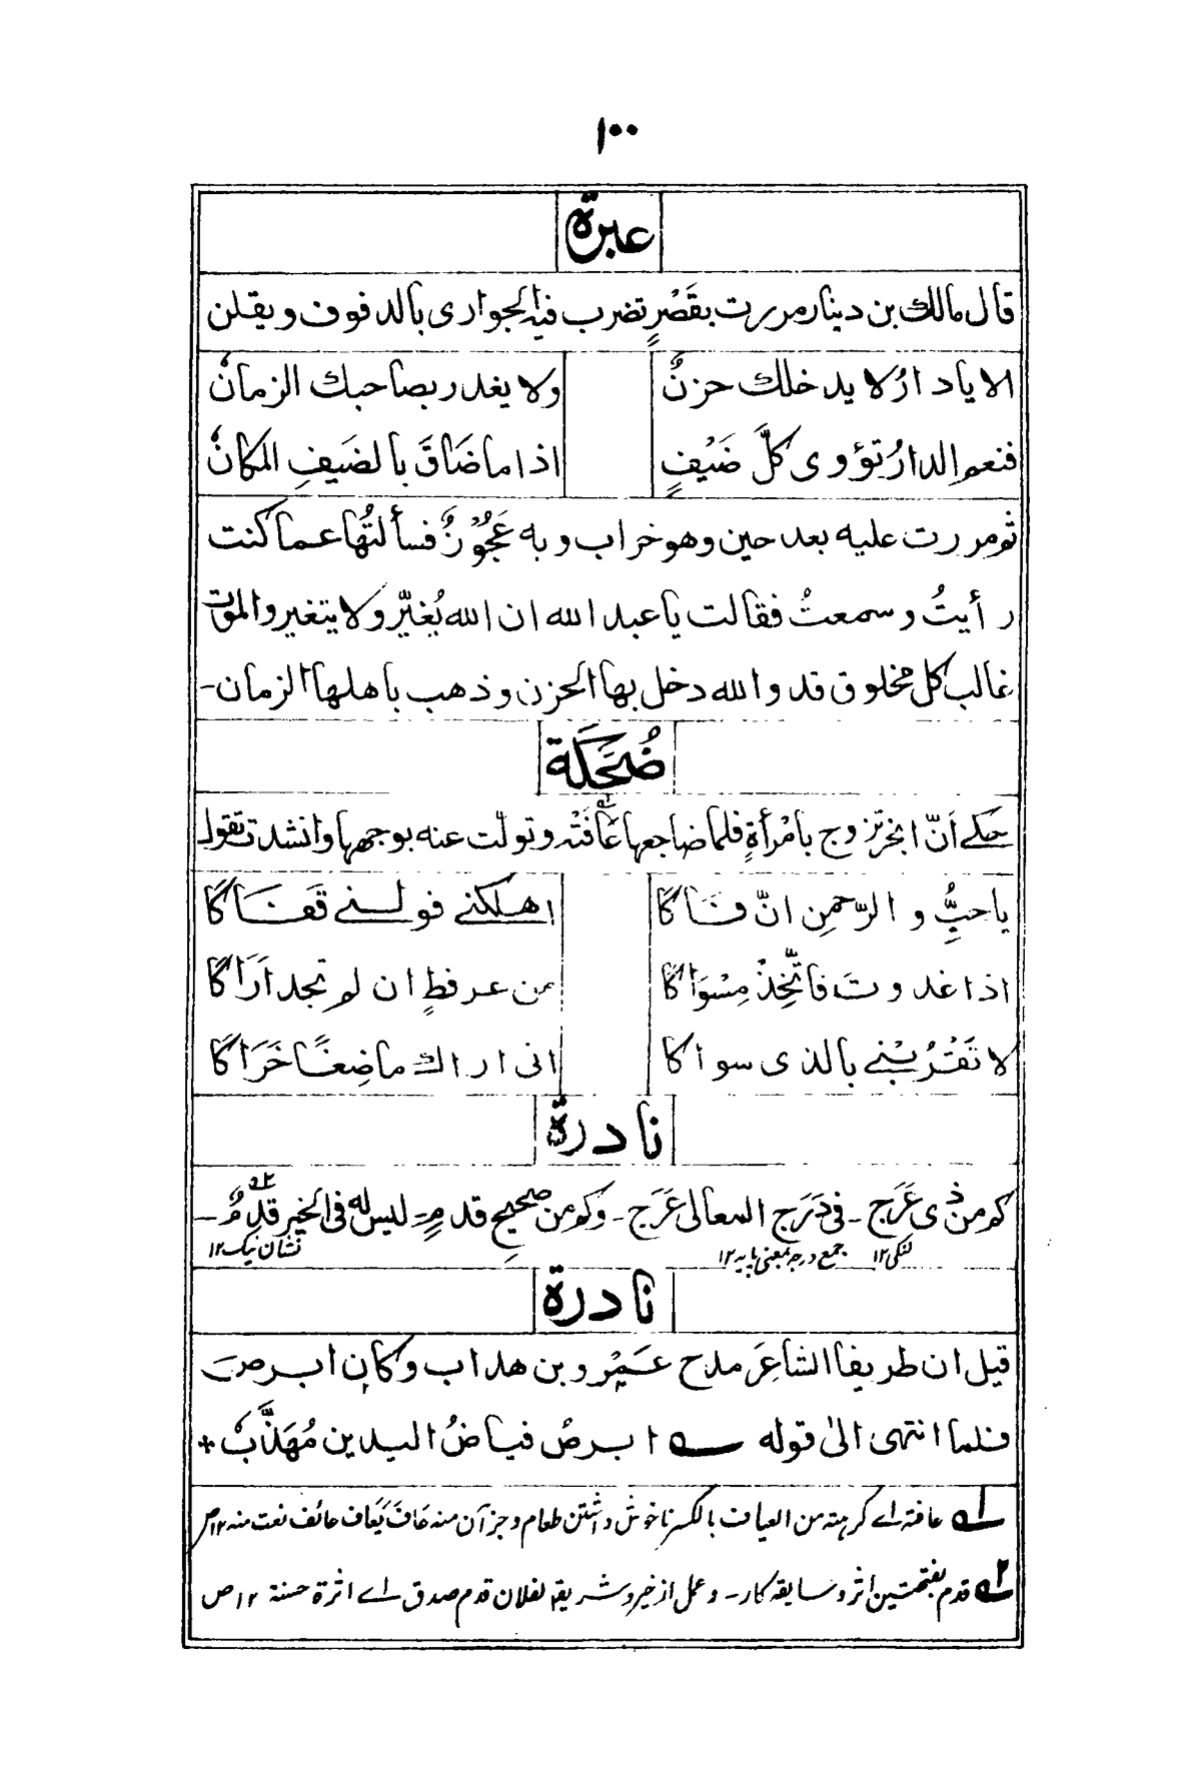 ١٠٠
عبرة
قال مالك بن دينار مررت بقَصْرٍ تضرب فيه الجوارى بالدفوف ويقلن
الا يا دارُ لا يدخلك حزنٌ ولا يغدر بصاحبك الزمانٗ
فنعم الدارُ تؤوى كلَّ ضَيْفٍ اذا ما ضَاقَ بالضَيفِ المكانٗ
ثم مررت عليه بعد حين وهو خراب وبه عَجُوْزٌ فسألتُها عما كنت
رأيتُ وسمعتُ فقالت يا عبد الله ان الله يُغيّر ولا يتغير والموت
غالب كل مخلوق قد والله دخل بها الحزن وذهب باهلها الزمان-
ضُحَكَة
حكے أنّ ابخر تزوج بامْرأةٍ فلما ضاجعها عَافَتْه وتولّت عنه بوجهها وانشدت تقول
يا حبُّ والرّحمنِ انّ فاكا اهلكنے فولنے قَفَاكَا
اذا غدوتَ فاتّخِذْ مِسْوَاكَا من عرفطٍ ان لم تجد اَرَاكَا
لا تَقْرُبْنے بالذى سواكا انى اراك ماضِغًا خَرَاكَا
نادرة
كم من ذى عَرَج - فى دَرَج المعالى عَرَج - وكم من صحيحِ قدمٍ - ليس له فى الخير قَدَمٌ -
لنگى ١٢ جمع درجہ بمعنى پايہ ١٢ نشان نيک ١٢
نادرة
قيل ان طريفا الشاعرَ مدح عَمْرو بن هداب وكان ابرص
فلما انتهى الىٰ قوله ؎ ابرصُ فياضُ اليدين مُهَذَّبٗ +
١ـه عافته اے كرهته من العياف بالكسر ناخوش داشتن طعام وجز آن منه عَافَ يَعَاف عائف نعت منه ١٢ ص
٢ـه قدم بفتحتين اثر وسابقہ كار - وعمل از خير وشر يقہ لفلان قدم صدق اے اثرة حسنة ١٢ ص